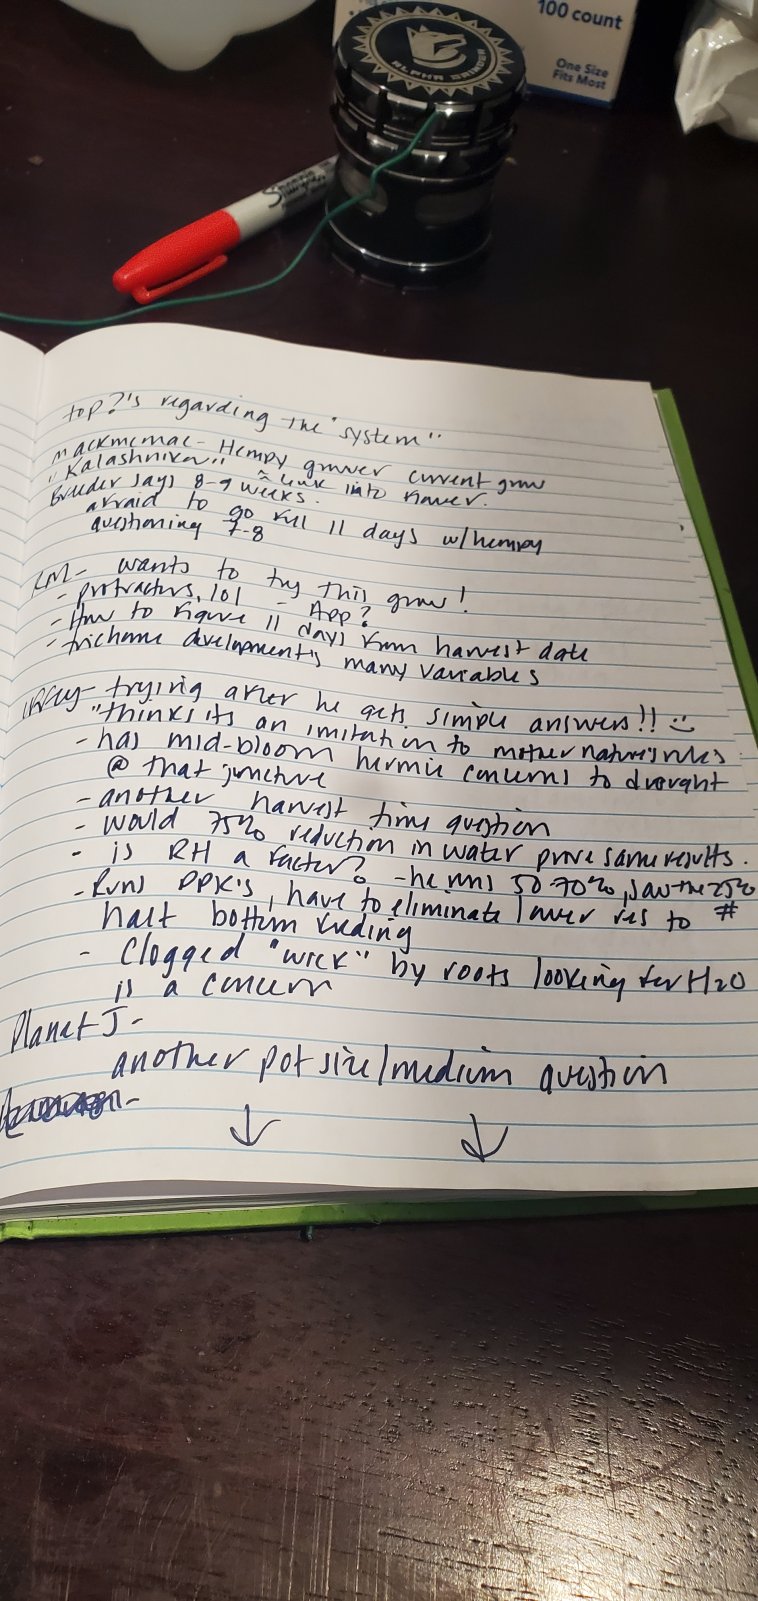 100 count
One Size
Fits Most
ALPHA GRINDER
Sharpie
top ?'s regarding the "system"
mackmcmac - Hempy grower current grow
"Kalashnikov" ~ 6 week into flower.
Breeder says 8-9 weeks.
afraid to go full 11 days w/hempy
questioning 7-8
- wants to try this grow!
- protractors, lol - App?
- How to figure 11 days from harvest date
- trichome development, many variables
- trying after he gets simple answers!!
"thinks its an imitation to mother nature's rules
- has mid-bloom hermie concerns to drought
@ that juncture
- another harvest time question
- would 75% reduction in water prove same results.
- is RH a factor? - he runs 50-70%, saw the 25%
- Runs PPK's, have to eliminate lower res to #
halt bottom feeding
- Clogged "wick" by roots looking for H2O
is a concern
Planet J -
another pot size/medium question